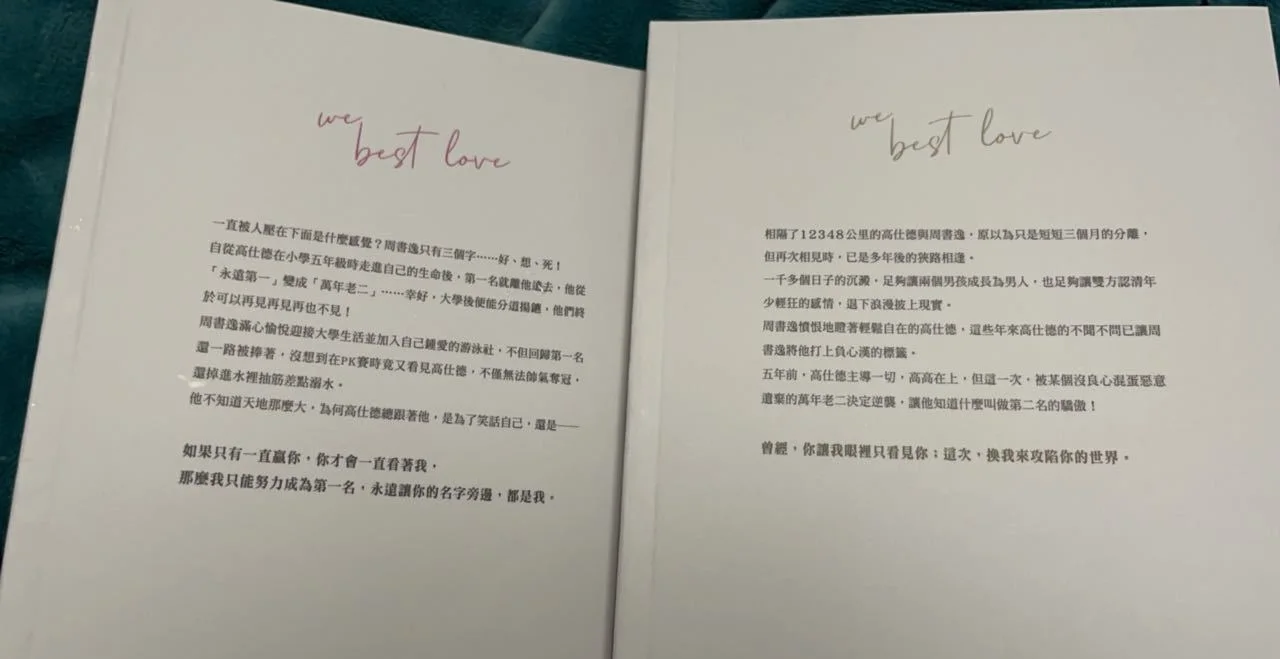 we
best love
一直被人壓在下面是什麼感覺？周書逸只有三個字……好、想、死！
自從高仕德在小學五年級時走進自己的生命後，第一名就離他遠去，他從
「永遠第一」變成「萬年老二」……幸好，大學後便能分道揚鑣，他們終
於可以再見再見再也不見！
周書逸滿心愉悅迎接大學生活並加入自己鍾愛的游泳社，不但回歸第一名
還一路被捧著，沒想到在PK賽時竟又看見高仕德，不僅無法帥氣奪冠，
還掉進水裡抽筋差點溺水。
他不知道天地那麼大，為何高仕德總跟著他，是為了笑話自己，還是──
如果只有一直贏你，你才會一直看著我，
那麼我只能努力成為第一名，永遠讓你的名字旁邊，都是我。
we
best love
相隔了12348公里的高仕德與周書逸，原以為只是短短三個月的分離，
但再次相見時，已是多年後的狹路相逢。
一千多個日子的沉澱，足夠讓兩個男孩成長為男人，也足夠讓雙方認清年
少輕狂的感情，退下浪漫披上現實。
周書逸憤恨地瞪著輕鬆自在的高仕德，這些年來高仕德的不聞不問已讓周
書逸將他打上負心漢的標籤。
五年前，高仕德主導一切，高高在上，但這一次，被某個沒良心混蛋惡意
遺棄的萬年老二決定逆襲，讓他知道什麼叫做第二名的驕傲！
曾經，你讓我眼裡只看見你；這次，換我來攻陷你的世界。